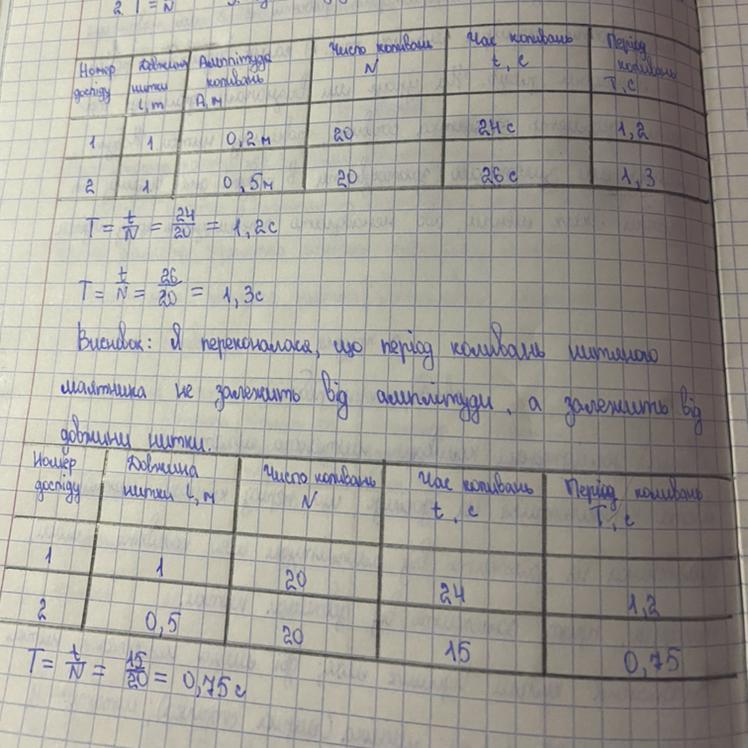 2 T = N
Номер досліду | Довжина нитки l, m | Амплітуда коливань A, м | Число коливань N | Час коливань t, с | Період коливань T, с
1 | 1 | 0,2 м | 20 | 24 с | 1,2
2 | 1 | 0,5 м | 20 | 26 с | 1,3
T = t/N = 24/20 = 1,2 с
T = t/N = 26/20 = 1,3 с
Висновок: Я переконалася, що період коливань нитяного
маятника не залежить від амплітуди, а залежить від
довжини нитки.
Номер досліду | Довжина нитки l, м | Число коливань N | Час коливань t, с | Період коливань T, с
1 | 1 | 20 | 24 | 1,2
2 | 0,5 | 20 | 15 | 0,75
T = t/N = 15/20 = 0,75 с